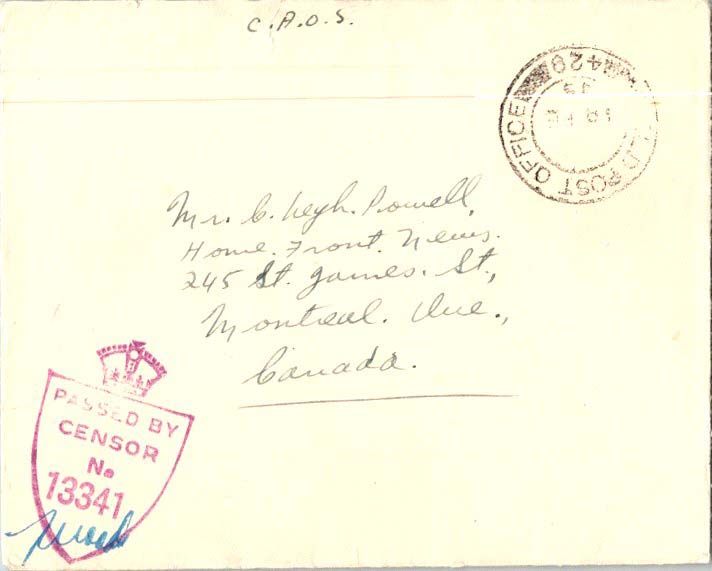 C.A.O.S.
LD POST OFFICE
428
Mr. C. Leigh. Powell,
Home. Front. News.
245 St. James. St.,
Montreal. Que.,
Canada.
PASSED BY
CENSOR
No
13341